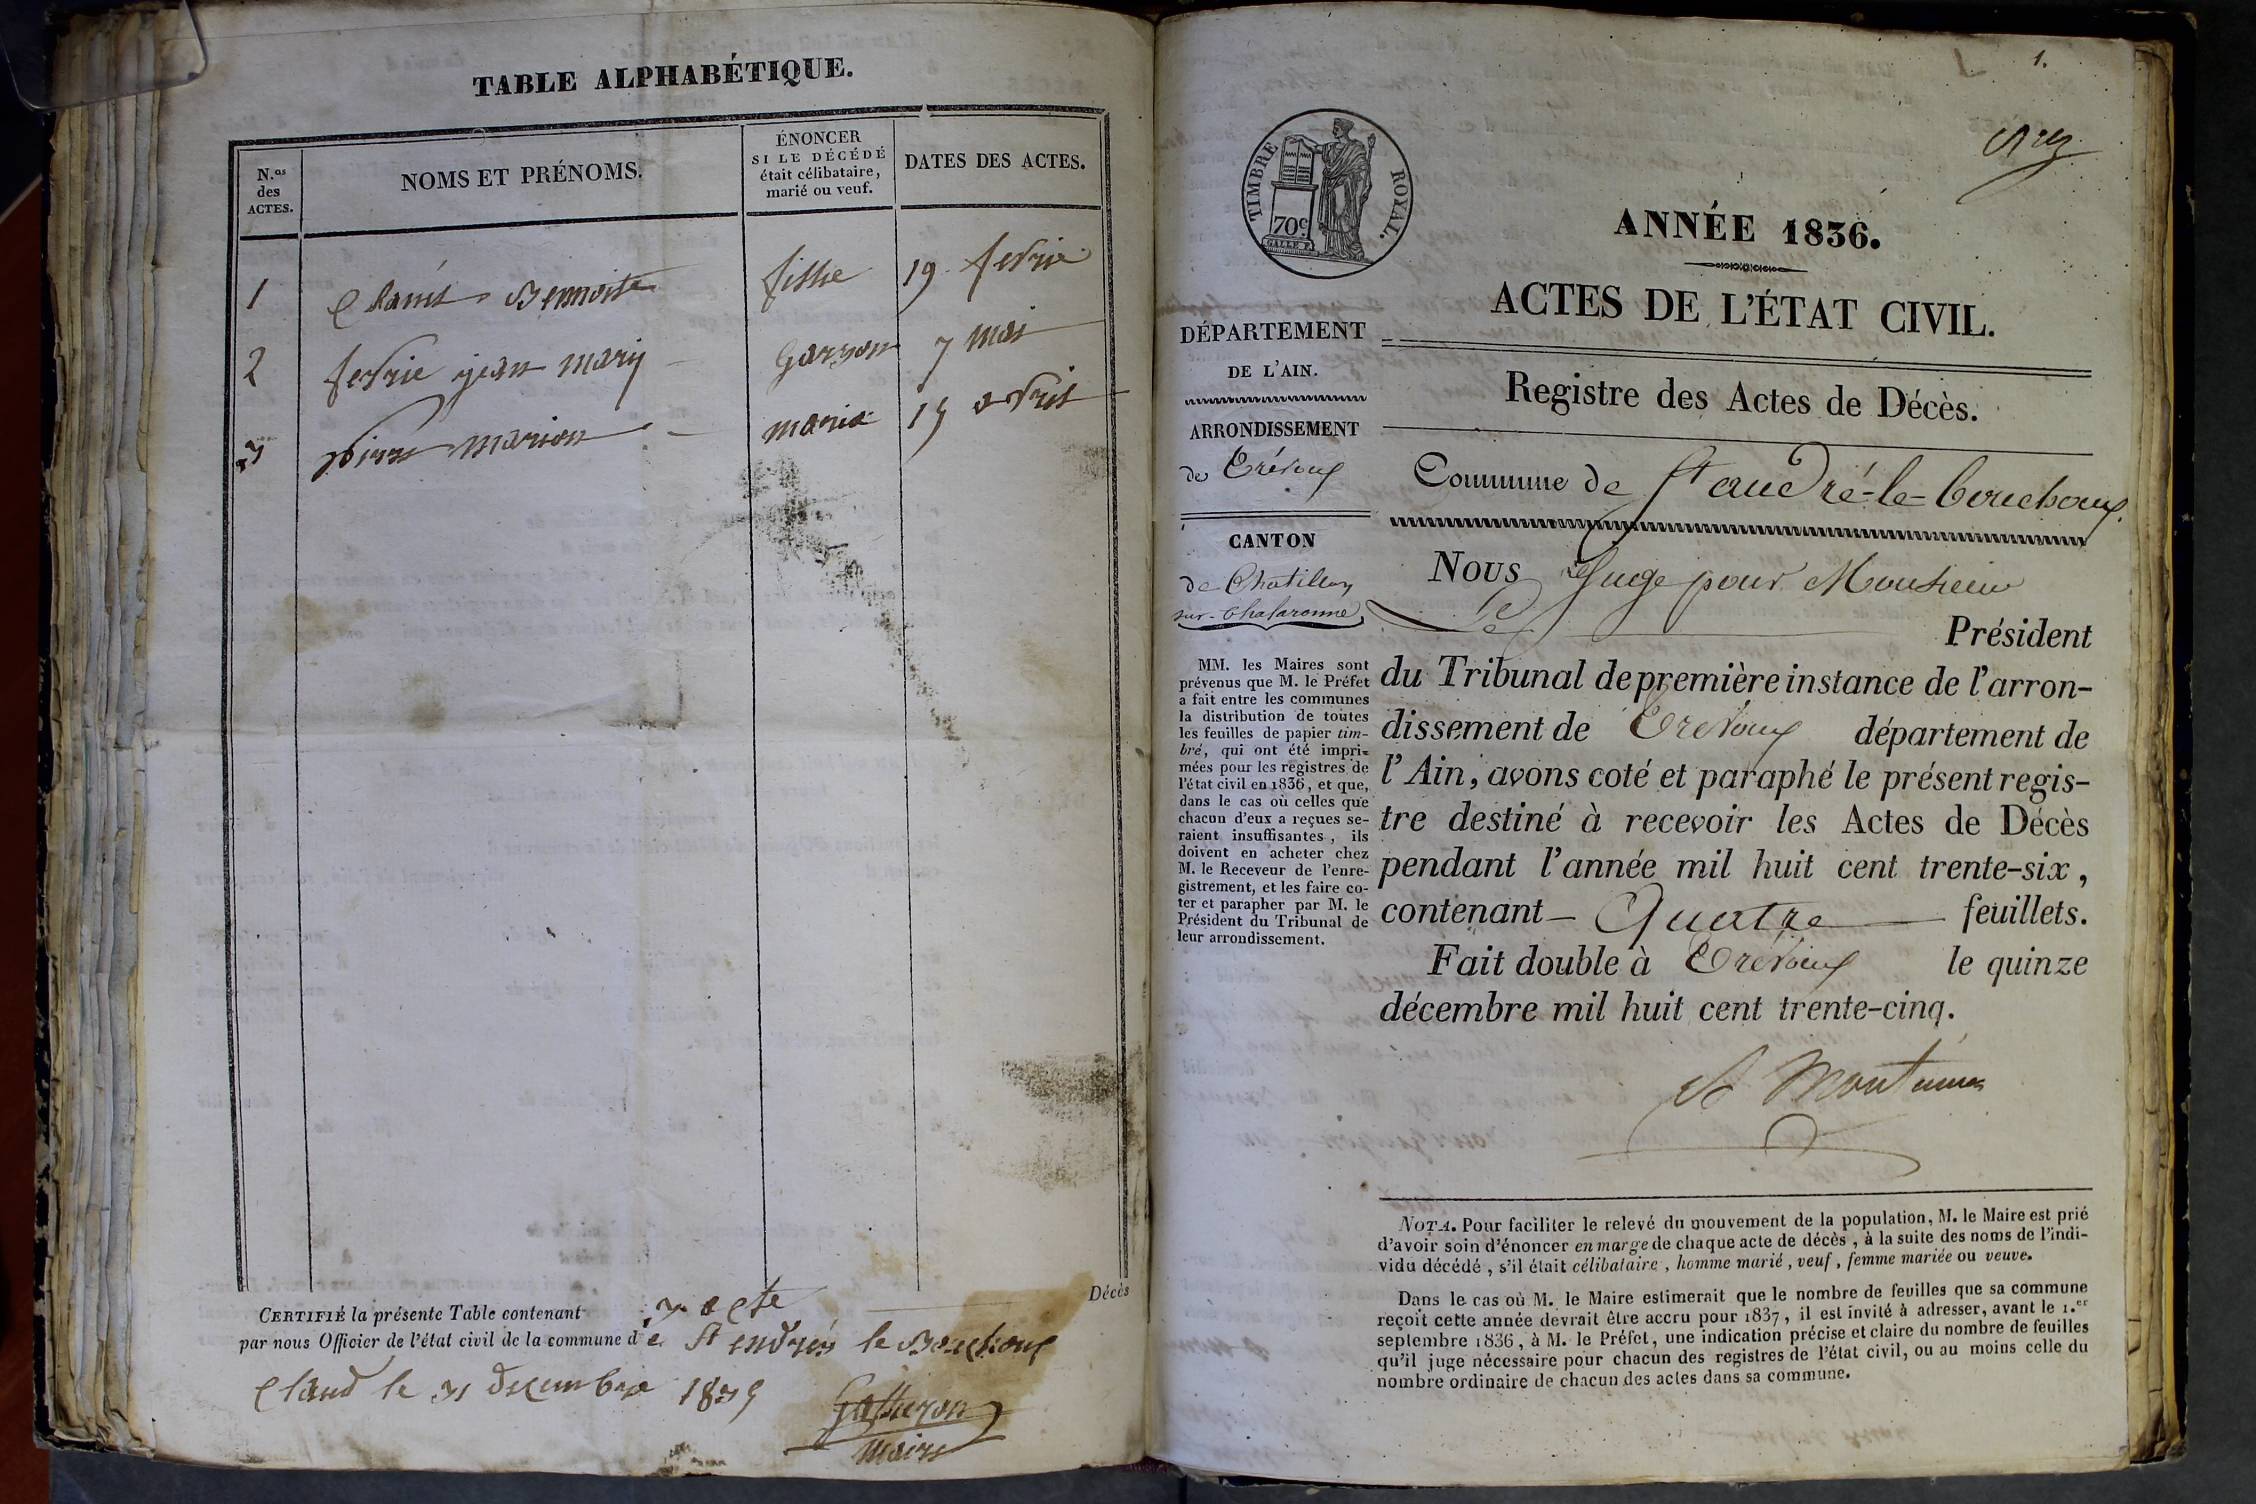 TABLE ALPHABÉTIQUE.
N.os des ACTES.
NOMS ET PRÉNOMS.
ÉNONCER
SI LE DÉCÉDÉ
était célibataire,
marié ou veuf.
DATES DES ACTES.
1 Benoite fillie 19 fevrie
2 fevrie jean mary garson 7 mai
3 pierre marion marie 15 avril
Décès
CERTIFIÉ la présente Table contenant 3 acte
par nous Officier de l'état civil de la commune de St endrés le Bouchoux
Claud le 31 decembre 1835
maire
1.
TIMBRE ROYAL.
70c.
ANNÉE 1836.
ACTES DE L'ÉTAT CIVIL.
Registre des Actes de Décès.
Commune de St andré-le-bouchoux.
DÉPARTEMENT
DE L'AIN.
ARRONDISSEMENT
de Trévoux
CANTON
de Chatillon
sur-Chalaronne
MM. les Maires sont
prévenus que M. le Préfet
a fait entre les communes
la distribution de toutes
les feuilles de papier tim-
bré, qui ont été impri-
mées pour les registres de
l'état civil en 1836, et que,
dans le cas où celles que
chacun d'eux a reçues se-
raient insuffisantes, ils
doivent en acheter chez
M. le Receveur de l'enre-
gistrement, et les faire co-
ter et parapher par M. le
Président du Tribunal de
leur arrondissement.
Nous Juge pour Monsieur
Le Président
du Tribunal de première instance de l'arron-
dissement de Trevoux département de
l'Ain, avons coté et paraphé le présent regis-
tre destiné à recevoir les Actes de Décès
pendant l'année mil huit cent trente-six,
contenant Quatre feuillets.
Fait double à Trévoux le quinze
décembre mil huit cent trente-cinq.
NOTA. Pour faciliter le relevé du mouvement de la population, M. le Maire est prié
d'avoir soin d'énoncer en marge de chaque acte de décès, à la suite des noms de l'indi-
vidu décédé, s'il était célibataire, homme marié, veuf, femme mariée ou veuve.
Dans le cas où M. le Maire estimerait que le nombre de feuilles que sa commune
reçoit cette année devrait être accru pour 1837, il est invité à adresser, avant le 1.er
septembre 1836, à M. le Préfet, une indication précise et claire du nombre de feuilles
qu'il juge nécessaire pour chacun des registres de l'état civil, ou au moins celle du
nombre ordinaire de chacun des actes dans sa commune.